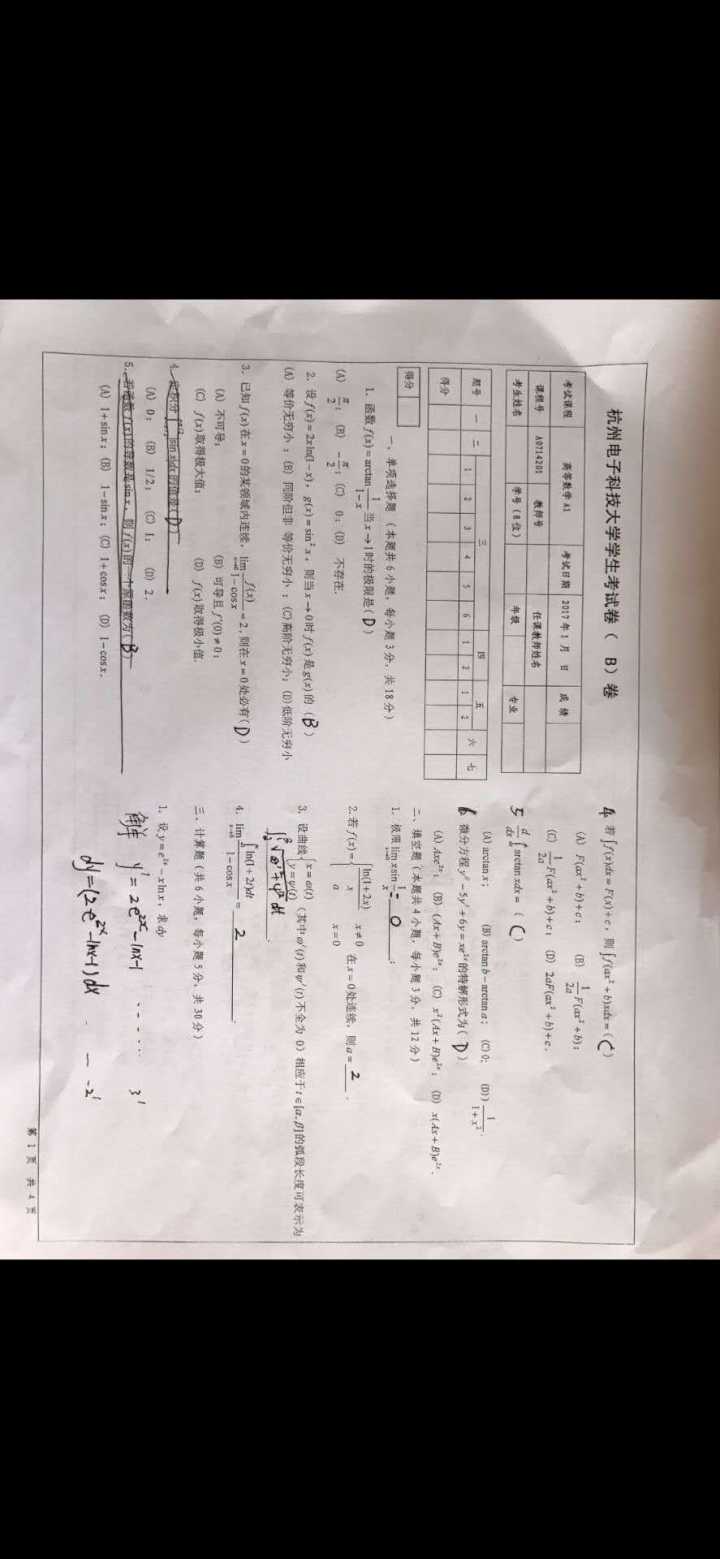 杭州电子科技大学学生考试卷（ B）卷
考试课程 高等数学 A1 考试日期 2017 年 1 月 日 成 绩
课程号 A0714201 教师号 任课教师姓名
考生姓名 学号（8 位） 年级 专业
题号 一 二 三 四 五 六 七
1 2 3 4 5 6 1 2 1 2
得分
得分
一、单项选择题 （本题共 6 小题，每小题 3 分，共 18 分）
1．函数 f(x) = arctan 1/(1−x) 当 x → 1 时的极限是( D )
(A) π/2； (B) −π/2；(C) 0；(D) 不存在.
2．设 f(x) = 2x ln(1−x)，g(x) = sin² x，则当 x → 0 时 f(x) 是 g(x) 的（ B ）
(A) 等价无穷小 ；(B) 同阶但非 等价无穷小 ；(C)高阶无穷小；(D)低阶无穷小
3．已知 f(x) 在 x = 0 的某领域内连续，lim x→0 f(x)/(1−cos x) = 2，则在 x = 0 处必有( D )
(A) 不可导； (B) 可导且 f′(0) ≠ 0；
(C) f(x) 取得极大值； (D) f(x) 取得极小值.
4. 定积分 |sin x|dx 的值是( D )
(A) 0； (B) 1/2； (C) 1； (D) 2．
5. 若函数 f(x) 的导数是 sin x，则 f(x) 的一个原函数为( B )
(A) 1+sin x；(B) 1−sin x；(C) 1+cos x； (D) 1−cos x．
4 若 ∫f(x)dx = F(x)+c，则 ∫f(ax²+b)xdx = ( C )
(A) F(ax²+b)+c； (B) 1/(2a) F(ax²+b)；
(C) 1/(2a) F(ax²+b)+c； (D) 2aF(ax²+b)+c．
5 d/dx ∫ arctan xdx = ( C )
(A) arctan x； (B) arctan b − arctan a； (C) 0； (D)) 1/(1+x²)．
6 微分方程 y″−5y′+6y = xe²ˣ 的特解形式为( D )
(A) Axe²ˣ； (B) (Ax+B)e²ˣ； (C) x²(Ax+B)e²ˣ； (D) x(Ax+B)e²ˣ．
二、填空题（本题共 4 小题，每小题 3 分，共 12 分）
1. 极限 lim x→0 x sin 1/x = 0 ；
2.若 f(x) = { ln(1+2x)/x x ≠ 0
a x = 0 在 x = 0 处连续，则 a = 2 .
3. 设曲线 { x = ω(t)
y = ψ(t) （其中 ω′(t) 和 ψ′(t) 不全为 0）相应于 t ∈ [α, β] 的弧段长度可表示为
∫ √(ω′²+ψ′²) dt .
4. lim x→0 ∫ ln(1+2t)dt / (1−cos x) = 2 .
三、计算题（共 6 小题，每小题 5 分，共 30 分）
1. 设 y = e²ˣ − x ln x，求 dy
解 y′ = 2e²ˣ − lnx − 1 ····· 3′
dy = (2e²ˣ − lnx − 1) dx . — - 2′
第 1 页 共 4 页